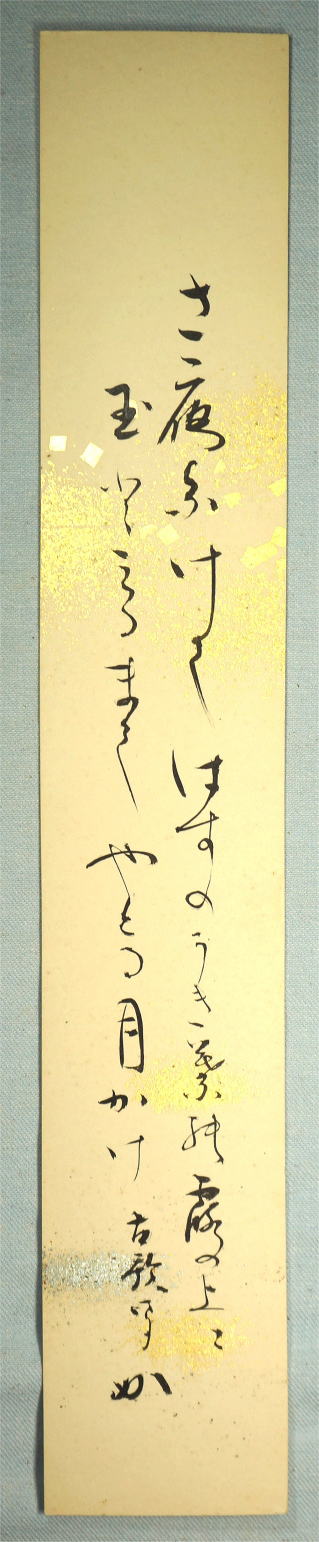 さ夜ふけてはすのうき葉の露の上に
玉とみるまてやとる月かけ
古歌